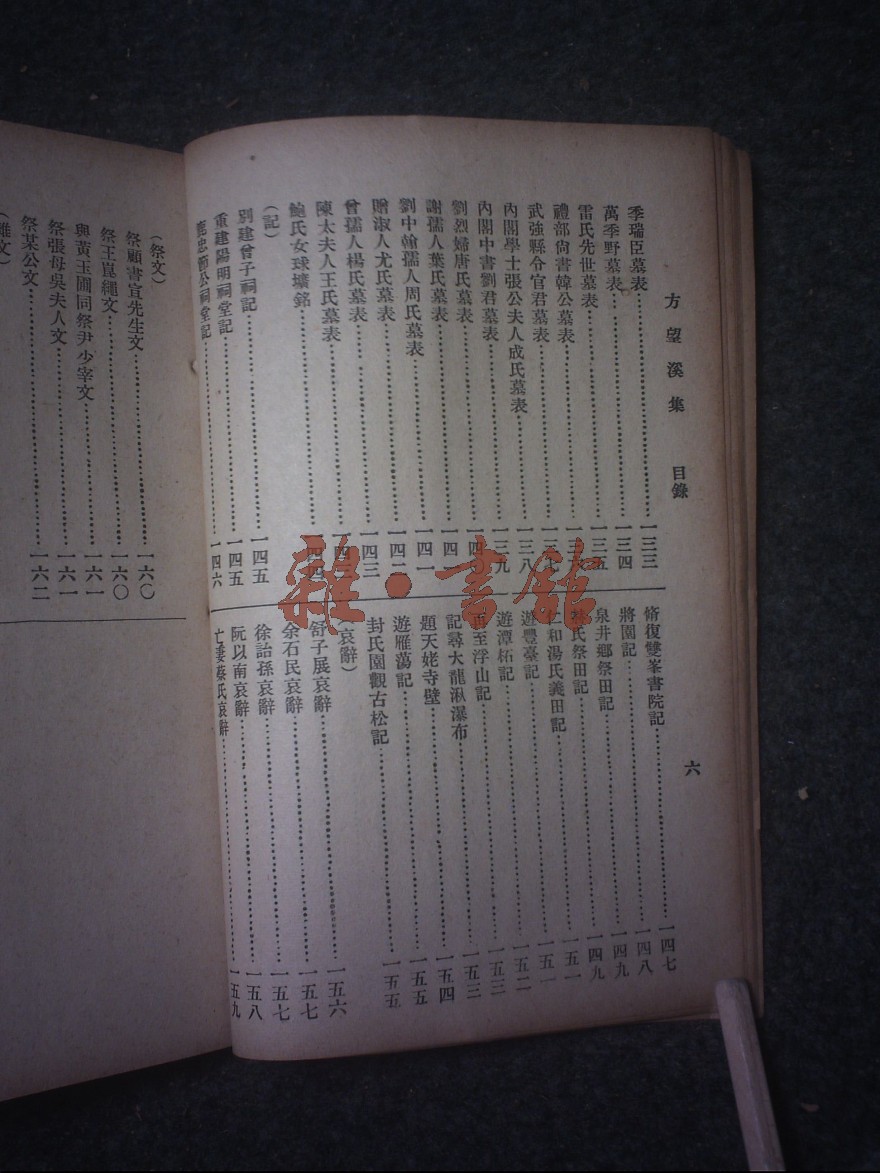 方望溪集 目錄
六
季瑞臣墓表 一三三
萬季野墓表 一三四
雷氏先世墓表 一三五
禮部尙書韓公墓表 一三六
武強縣令官君墓表 一三七
內閣學士張公夫人成氏墓表 一三八
內閣中書劉君墓表 一三九
劉烈婦唐氏墓表 一四〇
謝孺人葉氏墓表 一四一
劉中翰孺人周氏墓表 一四一
贈淑人尤氏墓表 一四二
曾孺人楊氏墓表 一四三
陳太夫人王氏墓表 一四三
鮑氏女球壙銘 一四四
(記)
別建曾子祠記 一四五
重建陽明祠堂記 一四五
鹿忠節公祠堂記 一四六
脩復雙峯書院記 一四七
將園記 一四八
泉井鄉祭田記 一四九
氏祭田記 一四九
仁和湯氏義田記 一五一
遊豐臺記 一五一
遊潭柘記 一五二
再至浮山記 一五三
記尋大龍湫瀑布 一五三
題天姥寺壁 一五四
遊雁蕩記 一五五
封氏園觀古松記 一五五
(哀辭)
舒子展哀辭 一五六
余石民哀辭 一五七
徐詒孫哀辭 一五七
阮以南哀辭 一五八
亡妻蔡氏哀辭 一五九
(祭文)
祭顧書宣先生文 一六〇
祭王崑繩文 一六〇
與黃玉圃同祭尹少宰文 一六一
祭張母吳夫人文 一六一
祭某公文 一六二
(雜文)
雜·書館